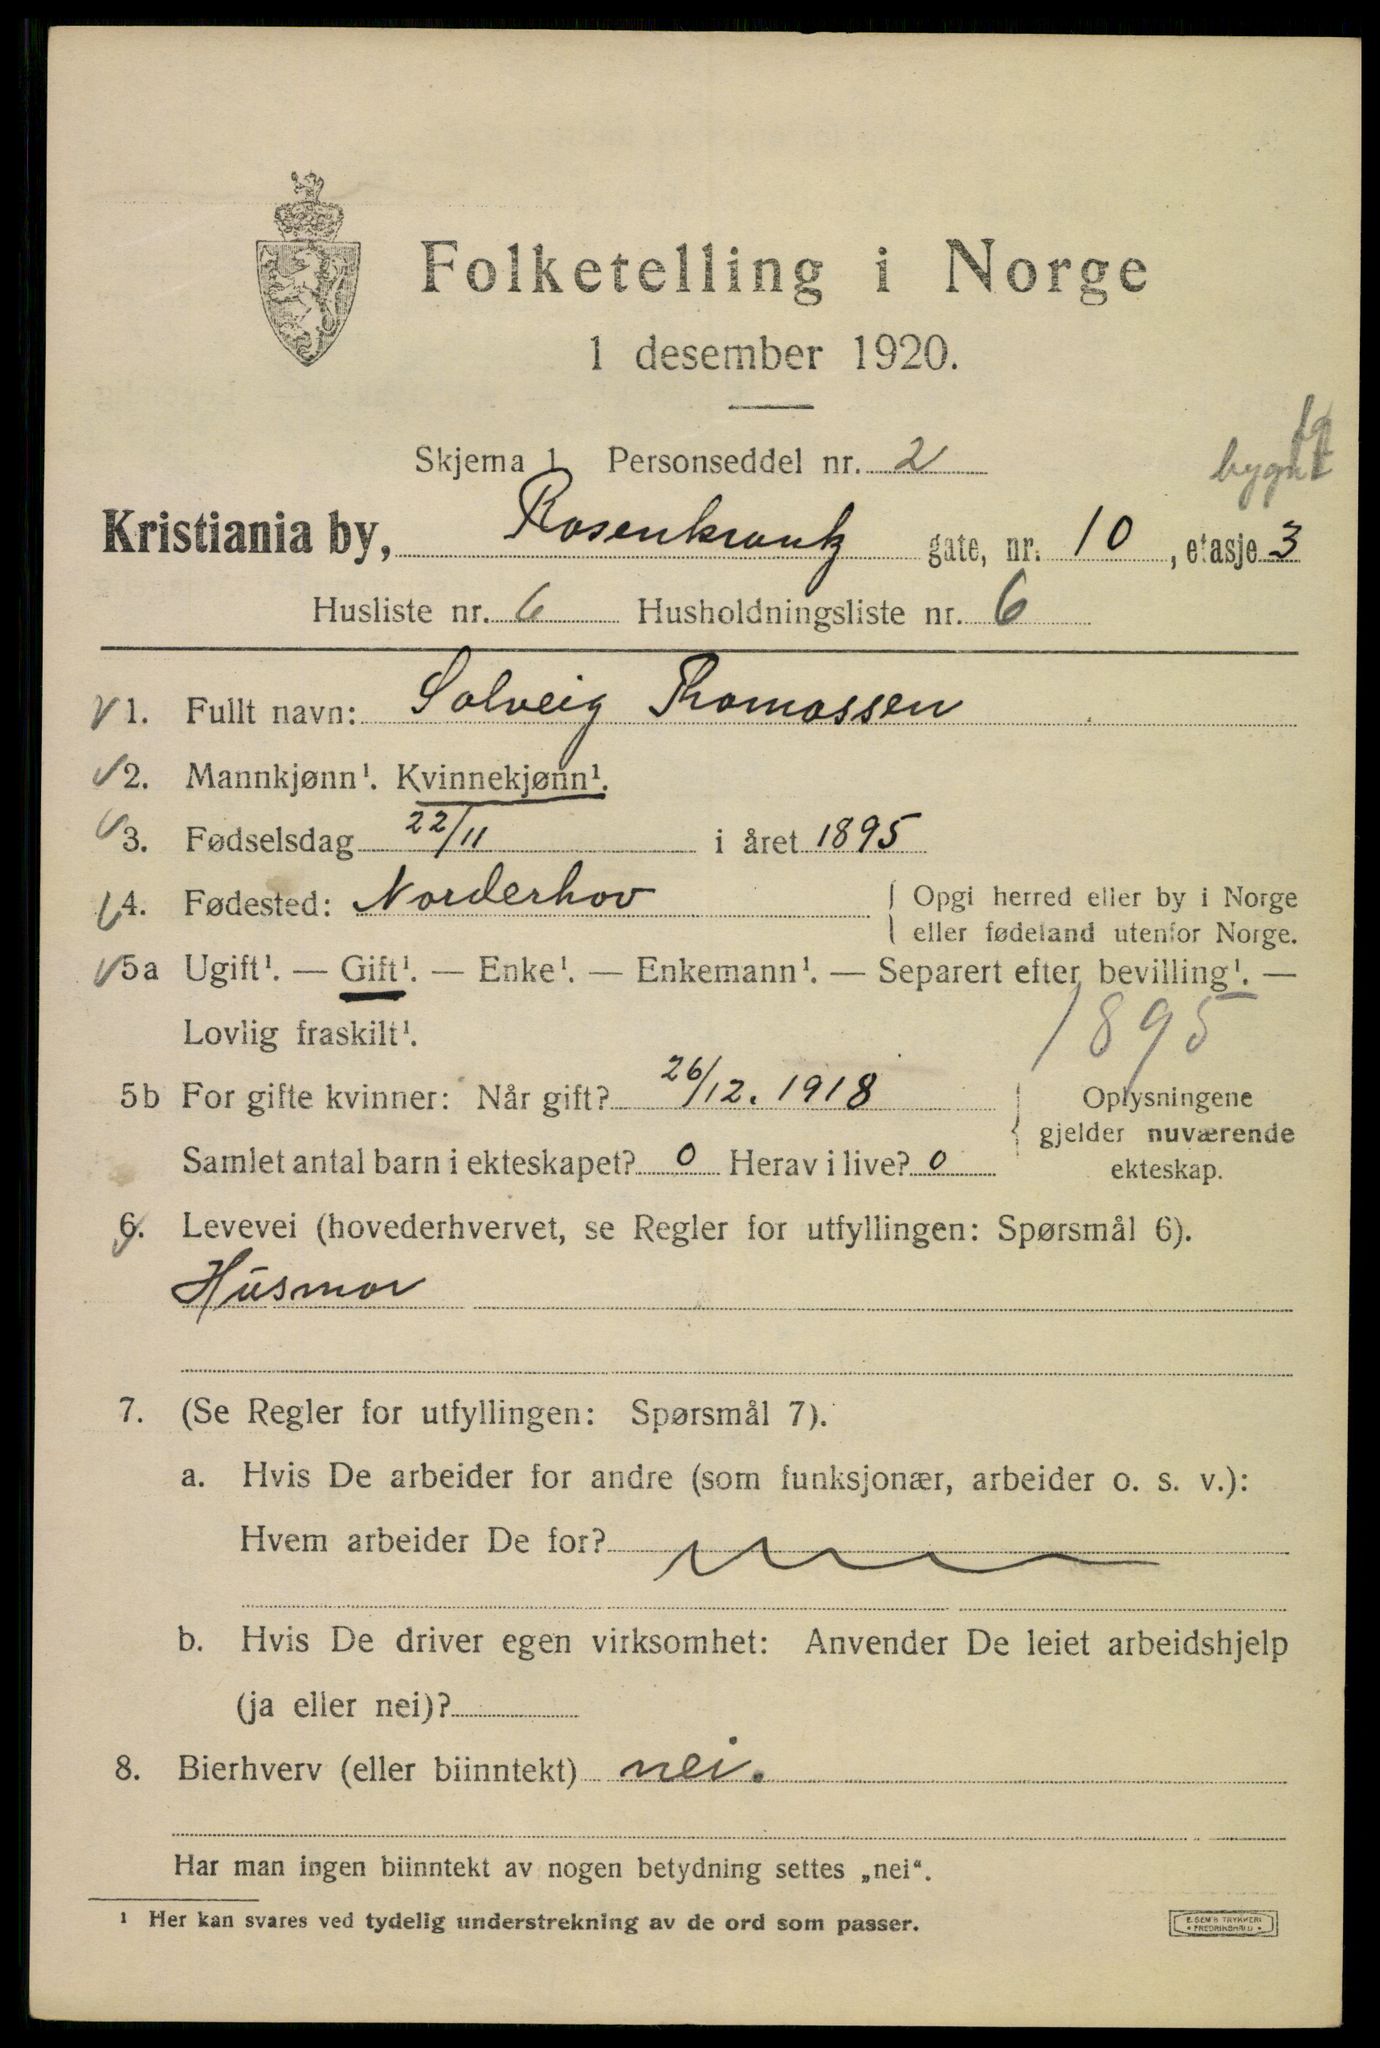 Folketelling i Norge
1 desember 1920.
Skjema 1 Personseddel nr. 2
bygn
Kristiania by, Rosenkrantz gate, nr. 10, etasje 3
Husliste nr. 6 Husholdningsliste nr. 6
1. Fullt navn: Solveig Thomassen
2. Mannkjønn¹. Kvinnekjønn¹.
3. Fødselsdag 22/11 i året 1895
4. Fødested: Norderhov { Opgi herred eller by i Norge
eller fødeland utenfor Norge.
5a Ugift¹. — Gift¹. — Enke¹. — Enkemann¹. — Separert efter bevilling¹. —
Lovlig fraskilt¹.
1895
5b For gifte kvinner: Når gift? 26/12. 1918
Samlet antal barn i ekteskapet? 0 Herav i live? 0
{ Oplysningene
gjelder nuværende
ekteskap.
6. Levevei (hovederhvervet, se Regler for utfyllingen: Spørsmål 6).
Husmor
7. (Se Regler for utfyllingen: Spørsmål 7).
a. Hvis De arbeider for andre (som funksjonær, arbeider o. s. v.):
Hvem arbeider De for?
b. Hvis De driver egen virksomhet: Anvender De leiet arbeidshjelp
(ja eller nei)?
8. Bierhverv (eller biinntekt) nei.
Har man ingen biinntekt av nogen betydning settes „nei“.
¹ Her kan svares ved tydelig understrekning av de ord som passer.
E. SEM'S TRYKKERI
* FREDRIKSHALD *